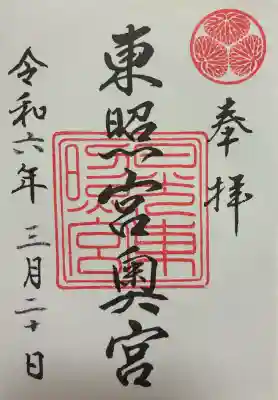 奉拝
東照宮奥宮
令和六年 三月二十日